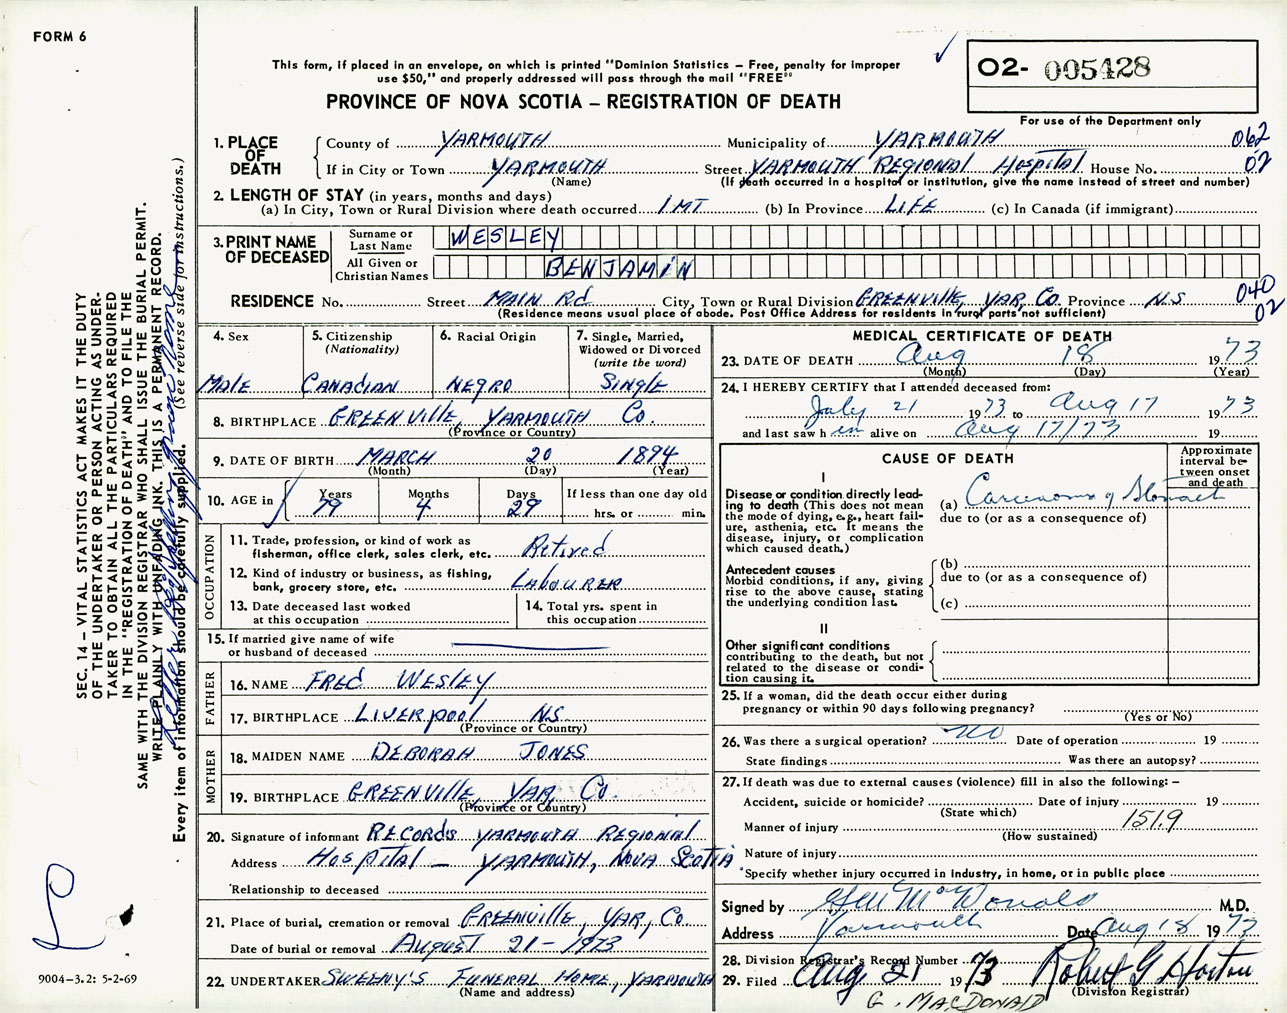 FORM 6
This form, if placed in an envelope, on which is printed "Dominion Statistics – Free, penalty for improper
use $50," and properly addressed will pass through the mail "FREE"
O2- 005428
For use of the Department only
PROVINCE OF NOVA SCOTIA – REGISTRATION OF DEATH
1. PLACE OF DEATH
County of YARMOUTH Municipality of YARMOUTH 062
If in City or Town YARMOUTH Street YARMOUTH REGIONAL HOSPITAL House No. 02
(Name) (If death occurred in a hospital or institution, give the name instead of street and number)
2. LENGTH OF STAY (in years, months and days)
(a) In City, Town or Rural Division where death occurred 1 MT (b) In Province LIFE (c) In Canada (if immigrant)
3. PRINT NAME OF DECEASED
Surname or Last Name WESLEY
All Given or Christian Names BENJAMIN
RESIDENCE No. Street MAIN Rd City, Town or Rural Division GREENVILLE, YAR Co Province N.S 040 02
(Residence means usual place of abode. Post Office Address for residents in rural parts not sufficient)
4. Sex
Male
5. Citizenship (Nationality)
CANADIAN
6. Racial Origin
NEGRO
7. Single, Married, Widowed or Divorced (write the word)
SINGLE
8. BIRTHPLACE GREENVILLE, YARMOUTH Co.
(Province or Country)
9. DATE OF BIRTH MARCH 20 1894
(Month) (Day) (Year)
10. AGE in Years 79 Months 4 Days 29 If less than one day old hrs. or min.
OCCUPATION
11. Trade, profession, or kind of work as fisherman, office clerk, sales clerk, etc. Retired
12. Kind of industry or business, as fishing, bank, grocery store, etc. LABOURER
13. Date deceased last worked at this occupation
14. Total yrs. spent in this occupation
15. If married give name of wife or husband of deceased
FATHER
16. NAME FRED WESLEY
17. BIRTHPLACE LIVERPOOL NS
(Province or Country)
MOTHER
18. MAIDEN NAME DEBORAH JONES
19. BIRTHPLACE GREENVILLE, YAR, Co.
(Province or Country)
20. Signature of informant RECORDS YARMOUTH REGIONAL
Address HOSPITAL – YARMOUTH, NOVA SCOTIA
Relationship to deceased
21. Place of burial, cremation or removal GREENVILLE, YAR, Co
Date of burial or removal AUGUST 21 – 1973
22. UNDERTAKER SWEENY'S FUNERAL HOME, YARMOUTH
(Name and address)
MEDICAL CERTIFICATE OF DEATH
23. DATE OF DEATH Aug 18 1973
(Month) (Day) (Year)
24. I HEREBY CERTIFY that I attended deceased from:
July 21 1973 to Aug 17 1973
and last saw him alive on Aug 17/73 19
CAUSE OF DEATH
Approximate interval between onset and death
I
Disease or condition directly leading to death (This does not mean the mode of dying, e.g., heart failure, asthenia, etc. It means the disease, injury, or complication which caused death.)
(a) Carcinoma of Stomach
due to (or as a consequence of)
Antecedent causes
Morbid conditions, if any, giving rise to the above cause, stating the underlying condition last.
(b)
due to (or as a consequence of)
(c)
II
Other significant conditions
contributing to the death, but not related to the disease or condition causing it.
25. If a woman, did the death occur either during pregnancy or within 90 days following pregnancy?
(Yes or No)
26. Was there a surgical operation? no Date of operation 19
State findings Was there an autopsy?
27. If death was due to external causes (violence) fill in also the following: –
Accident, suicide or homicide? Date of injury 19
(State which)
Manner of injury 151.9
(How sustained)
Nature of injury
Specify whether injury occurred in industry, in home, or in public place
Signed by McDonald M.D.
Address Yarmouth Date Aug 18 1973
28. Division Registrar's Record Number
29. Filed Aug. 21 1973 Robert G Horton
(Division Registrar)
G. MACDONALD
SEC. 14 – VITAL STATISTICS ACT MAKES IT THE DUTY
OF THE UNDERTAKER OR PERSON ACTING AS UNDER-
TAKER TO OBTAIN ALL THE PARTICULARS REQUIRED
IN THE "REGISTRATION OF DEATH" AND TO FILE THE
SAME WITH THE DIVISION REGISTRAR WHO SHALL ISSUE THE BURIAL PERMIT.
WRITE PLAINLY WITH UNFADING INK. THIS IS A PERMANENT RECORD.
Every item of information should be carefully supplied. (See reverse side for instructions.)
9004–3.2: 5-2-69